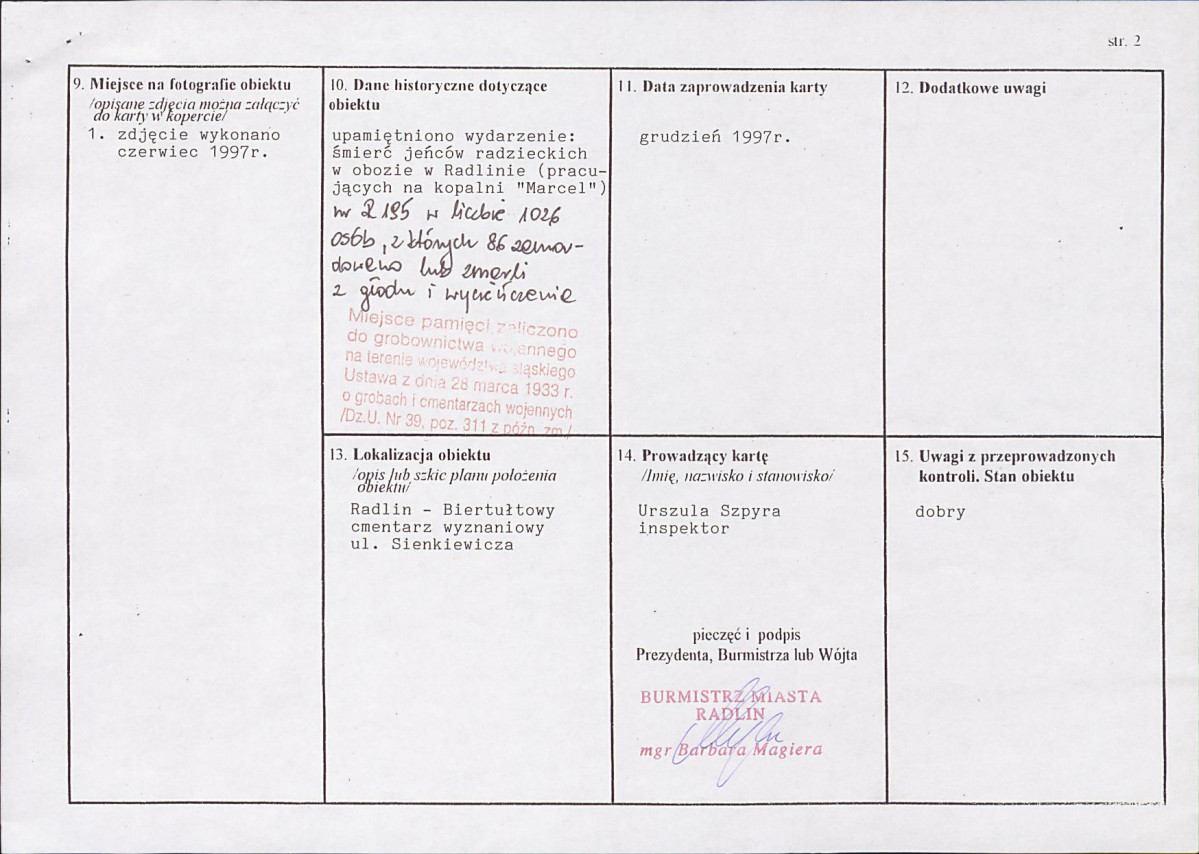 str. 2
9. Miejsce na fotografie obiektu
/opisane zdjęcia można załączyć
do karty w kopercie/
1. zdjęcie wykonano
czerwiec 1997r.
10. Dane historyczne dotyczące
obiektu
upamiętniono wydarzenie:
śmierć jeńców radzieckich
w obozie w Radlinie (pracu-
jących na kopalni "Marcel")
nr R 195 w liczbie 1026
osób, z których 86 zamor-
dowano lub zmarli
z głodu i wycieńczenia
Miejsce pamięci zaliczono
do grobownictwa wojennego
na terenie województwa śląskiego
Ustawa z dnia 28 marca 1933 r.
o grobach i cmentarzach wojennych
/Dz.U. Nr 39, poz. 311 z późn. zm./
11. Data zaprowadzenia karty
grudzień 1997r.
12. Dodatkowe uwagi
13. Lokalizacja obiektu
/opis lub szkic planu położenia
obiektu/
Radlin - Biertułtowy
cmentarz wyznaniowy
ul. Sienkiewicza
14. Prowadzący kartę
/Imię, nazwisko i stanowisko/
Urszula Szpyra
inspektor
pieczęć i podpis
Prezydenta, Burmistrza lub Wójta
BURMISTRZ MIASTA
RADLIN
mgr Barbara Magiera
15. Uwagi z przeprowadzonych
kontroli. Stan obiektu
dobry